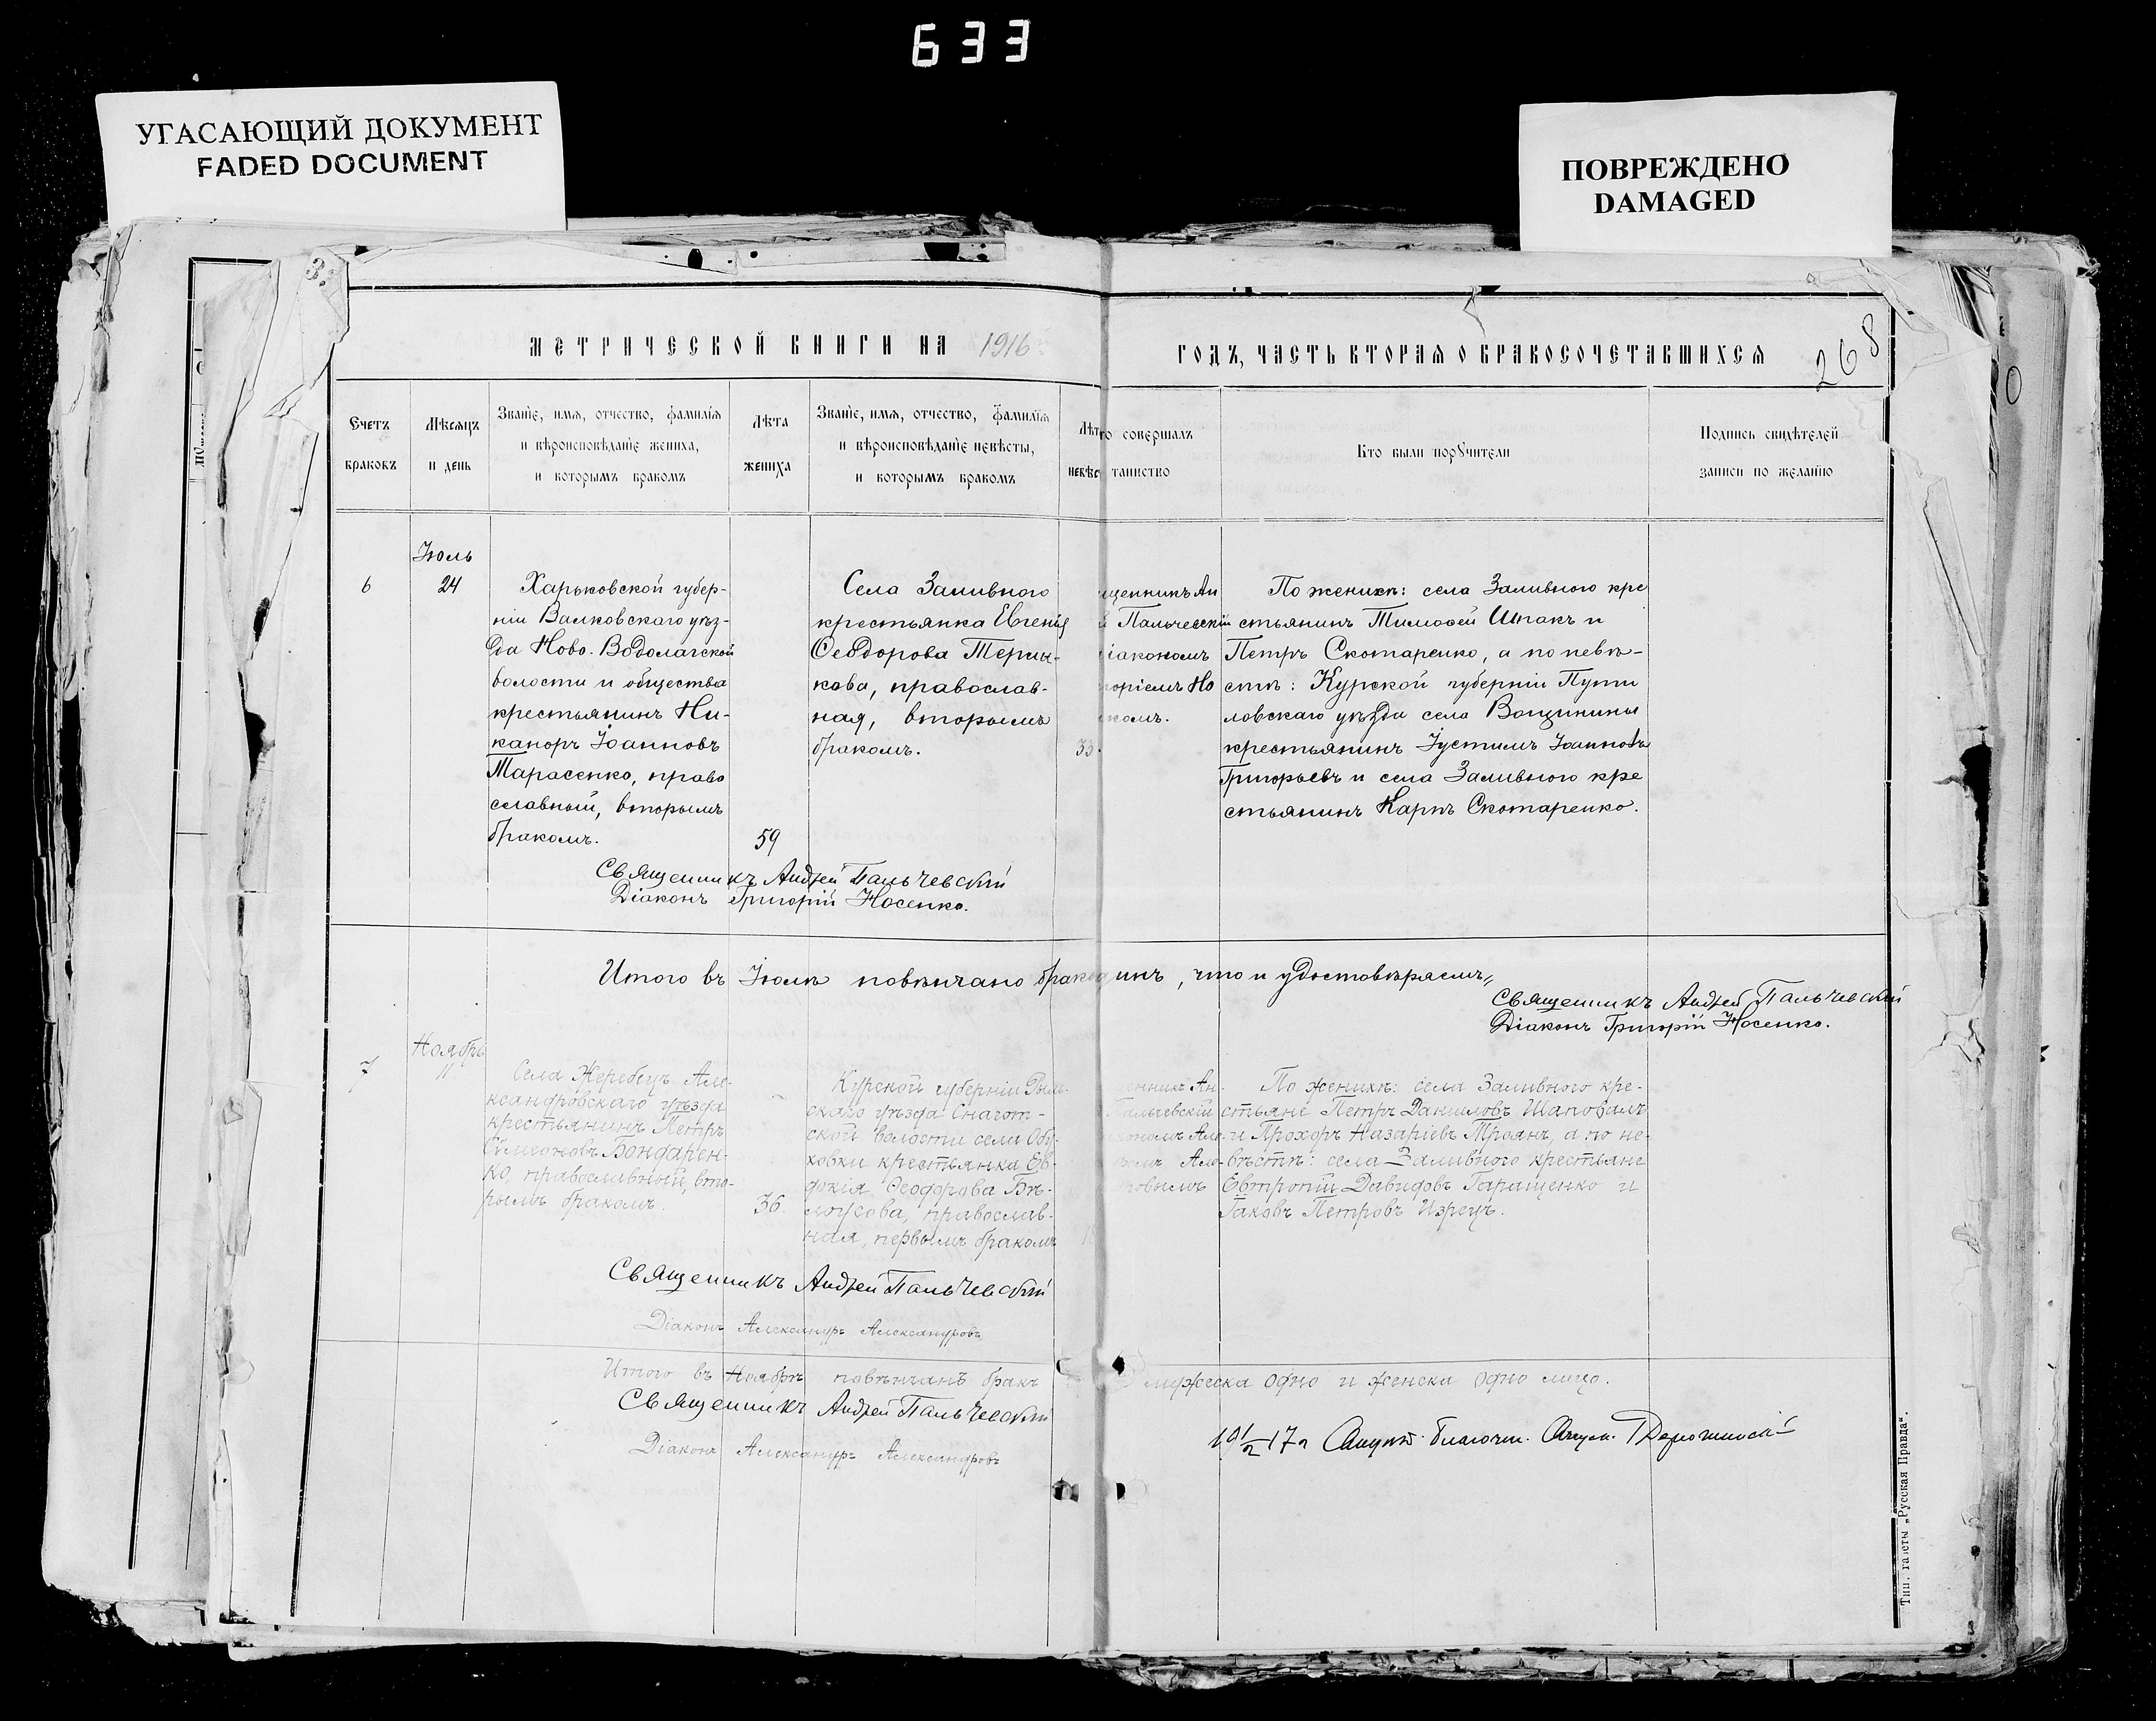 633
УГАСАЮЩИЙ ДОКУМЕНТ
FADED DOCUMENT
ПОВРЕЖДЕНО
DAMAGED
МЕТРИЧЕСКОЙ КНИГИ НА 1916
ГОДЪ, ЧАСТЬ ВТОРАЯ О БРАКОСОЧЕТАВШИХСЯ
268
Счетъ
браковъ
Мѣсяцъ
и день
Званіе, имя, отчество, фамилія
и вѣроисповѣданіе жениха,
и которымъ бракомъ
Лѣта
жениха
Званіе, имя, отчество, фамилія
и вѣроисповѣданіе невѣсты,
и которымъ бракомъ
Лѣт
невѣс
о совершалъ
таинство
Кто были поручители
Подпись свидѣтелей
записи по желанію
Іюль
6
24
Харьковской губер-
ніи Валковскаго уѣз-
да Ново-Водолагской
волости и общества
крестьянинъ Ни-
каноръ Іоанновъ
Тарасенко, право
славный, вторымъ
бракомъ.
59
Села Заливного
крестьянка Евгенія
Ѳеодорова
кова, православ-
ная, вторымъ
бракомъ.
33
щенникъ Ан
й Пальчевскій
іакономъ
горіемъ Но
комъ.
По женихѣ: села Заливного кре
стьянинъ Тимоѳей Шпакъ и
Петръ Скотаренко, а по невѣ-
стѣ: Курской губерніи Пути
ловскаго уѣзда села
крестьянинъ Іустимъ Іоанновъ
Григорьевъ и села Заливного кре
стьянинъ Карпъ Скотаренко.
Священникъ Андрей Пальчевскій
Діаконъ Григорій Носенко.
Итого въ Іюлѣ повѣнчано браковъ инъ, что и удостовѣряемъ,
Священникъ Андрей Пальчевскій
Діаконъ Григорій Носенко.
Ноябрь
7
11
Села Жеребецъ Але-
ксандровскаго уѣзда
крестьянинъ Петръ
Симеоновъ Бондарен-
ко, православный, вто-
рымъ бракомъ.
36.
Курской губерніи Рыль-
скаго уѣзда Снагот-
ской волости села Обу-
ховки крестьянка Ев-
докія Ѳеодорова Бѣ-
лоусова, православ-
ная, первымъ бракомъ
енникъ Ан-
Пальчевскій
кономъ Але-
Але-
ровымъ
По женихѣ: села Заливного кре-
стьяне Петръ Даниловъ Шаповалъ
и Прохоръ Назаріевъ Троянъ, а по не-
вѣстѣ: села Заливного крестьяне
Евтропій Давидовъ Гаращенко и
Іаковъ Петровъ Изрецъ.
Священникъ Андрей Пальчевскій
Діаконъ Александръ Александровъ
Итого въ Ноябрѣ повѣнчанъ бракъ
мужеска одно и женска одно лицо.
Священникъ Андрей Пальчевскій
Діаконъ Александръ Александровъ
Тип. газеты „Русская Правда“.